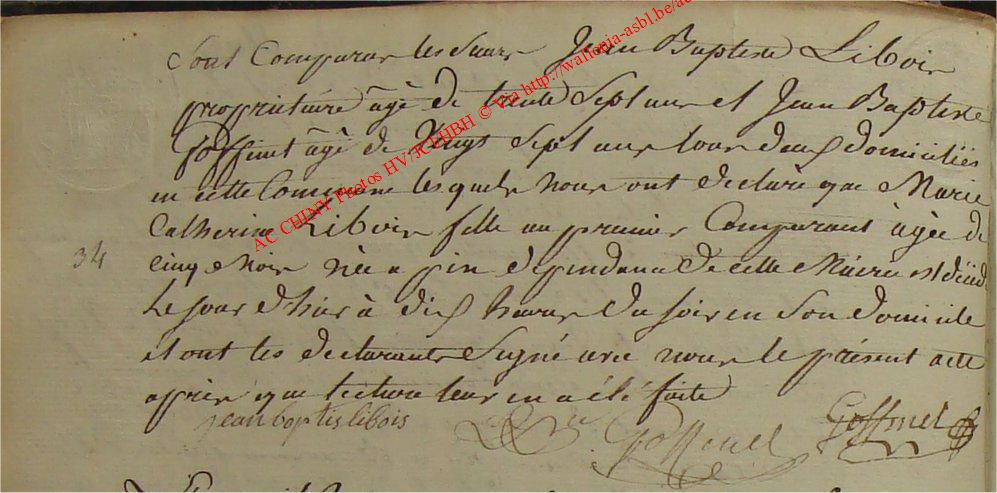 Sont Comparus les Sieurs Jean Baptiste Libois
propriétaire âgé de trente Sept ans et Jean Baptiste
Goffinet âgé de Vingt Sept ans tous deux domiciliés
en cette Commune lesquels nous ont déclaré que Marie
Catherine Libois fille au premier Comparant âgée de
34
Cinq Mois née a pin dépendance de cette Mairie est décéd
Le jour d'hier à dix heures du soir en Son domicile
et ont les déclarants Signé avec nous le présent acte
après que lecture leur en a été faite
jean baptis libois
Goffinet
Goffinet
AC CHINY Photos HV/JCH/HBH © via http://wallonia-asbl.be/ac